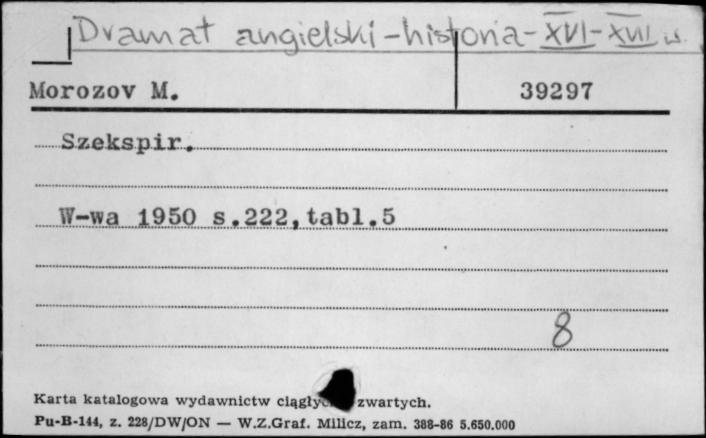 Dramat angielski - historia - XVI - XVII w.
Morozov M. 39297
Szekspir.
W-wa 1950 s.222,tabl.5
8
Karta katalogowa wydawnictw ciągły zwartych.
Pu-B-144, z. 228/DW/ON — W.Z.Graf. Milicz, zam. 388-86 5.650.000